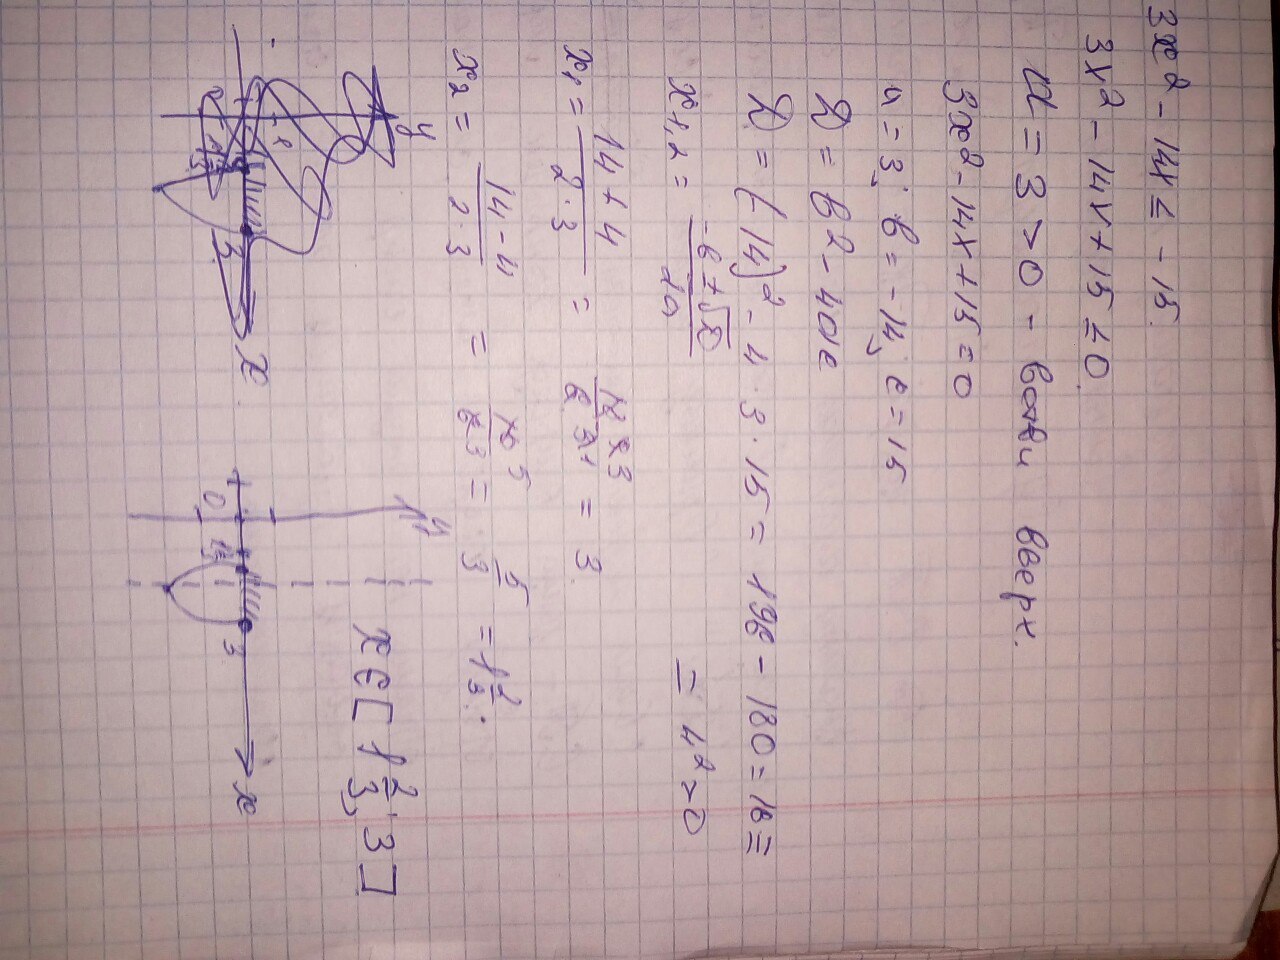 3x² - 14x ≤ -15.
3x² - 14x + 15 ≤ 0.
a = 3 > 0 - ветви вверх.
3x² - 14x + 15 = 0
a = 3; b = -14, c = 15
D = b² - 4ac
D = (-14)² - 4 · 3 · 15 = 196 - 180 = 16 =
= 4² > 0
x1,2 = -b ± √D / 2a
x₁ = 14 + 4 / 2 · 3 = 18 / 6 = 3.
x₂ = 14 - 4 / 2 · 3 = 10 5 / 6 3 = 5/3 = 1 2/3.
x ∈ [1 2/3; 3]
y
3
x
y
0
1 2/3
3
x